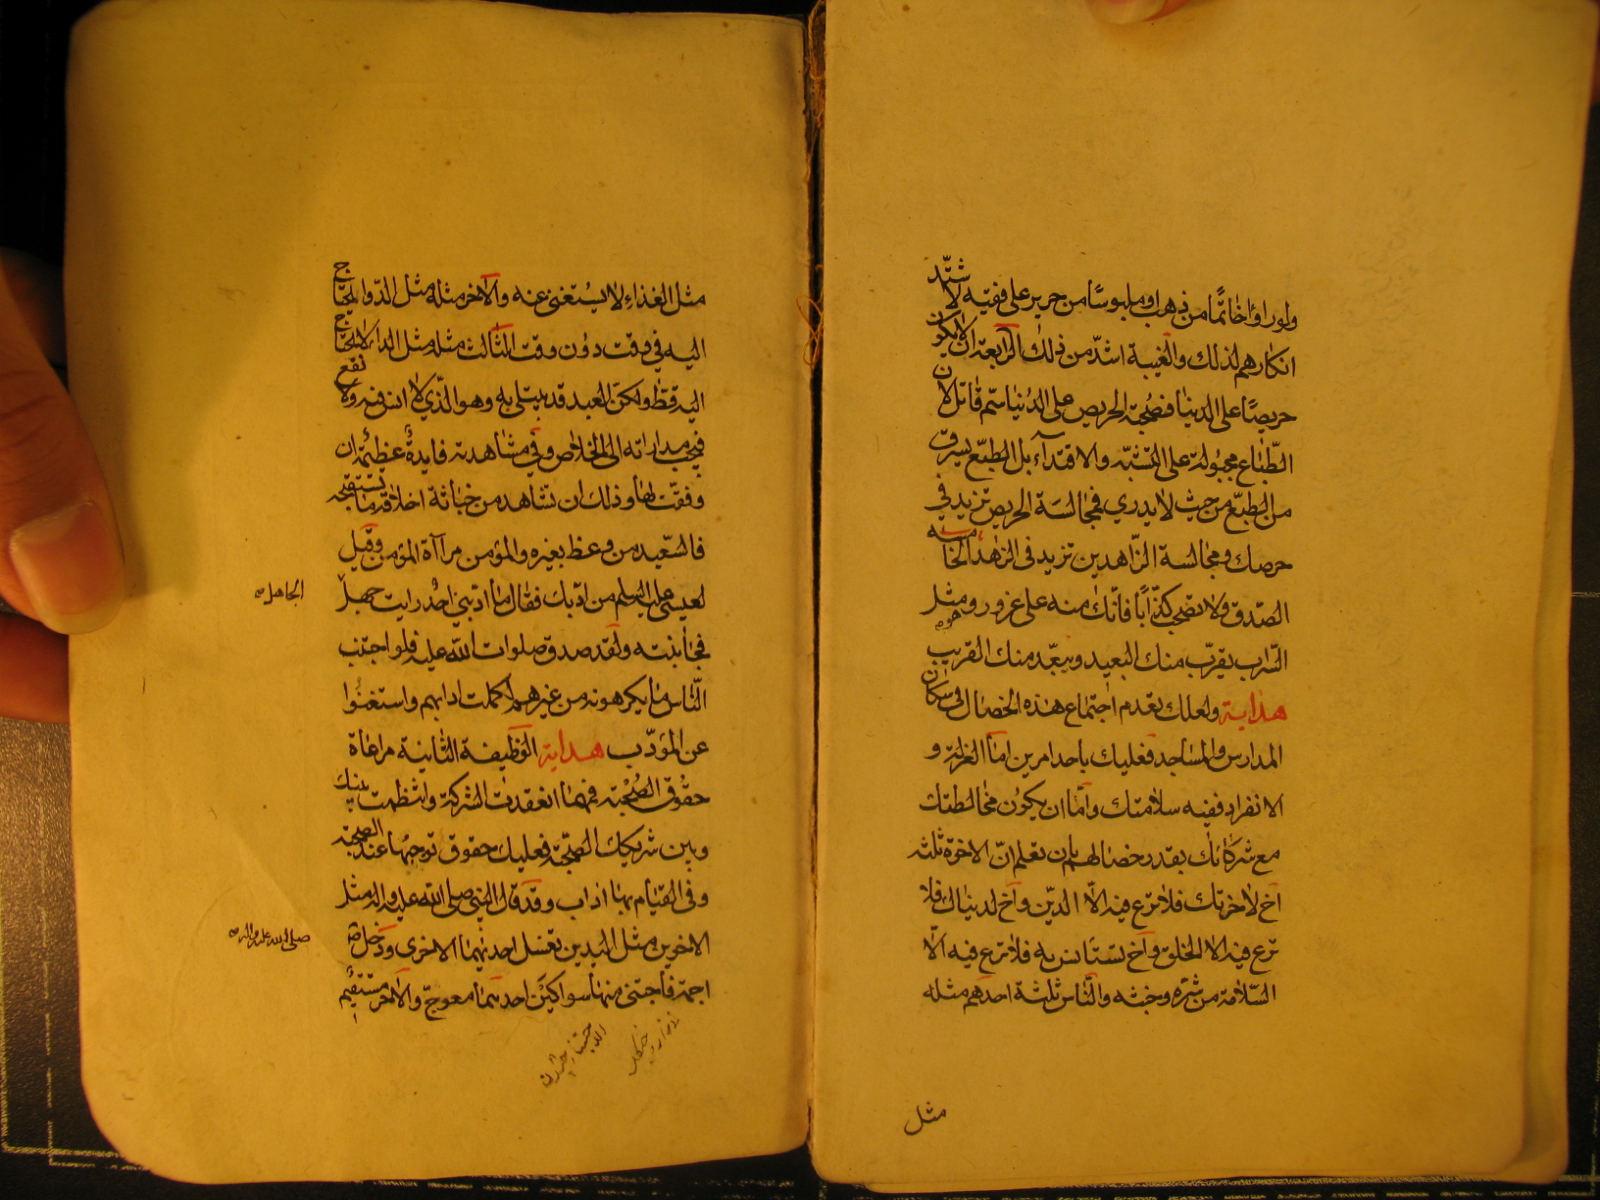 ولو راوا خاتما من ذهب او ملبوسا من حرير على فقيه لاشتد
انكارهم لذلك والغيبة اشد من ذلك الرابعة ان لا يكون
حريصا على الدنيا فصحبة الحريص على الدنيا سم قاتل لان
الطباع مجبولة على التشبه والاقتداء بل الطبع يسرق
من الطبع من حيث لا يدري فمجالسة الحريص تزيد في
حرصك ومجالسة الزاهدين تزيد في الزهد الخامسة
الصدق ولا تصحب كذابا فانك منه على غرور ومثل
هو
السراب يقرب منك البعيد ويبعد منك القريب
هداية ولعلك تعدم اجتماع هذه الخصال في سكان
المدارس والمساجد فعليك باحد امرين اما العزلة و
الانفراد ففيه سلامتك واما ان يكون مخالطتك
مع شركائك بقدر خصالهم بان تعلم ان الاخوة ثلثة
اخ لاخرتك فلا ترع فيه الا الدين واخ لدنياك فلا
ترع فيه الا الخلق واخ تستانس به فلا ترع فيه الا
السلامة من شره وخبثه والناس ثلثة احدهم مثله
مثل
مثل الغذاء لا يستغنى عنه والاخر مثله مثل الدواء يحتاج
اليه في وقت دون وقت الثالث مثله مثل الداء لا يحتاج
اليه قط ولكن العبد قد يبتلى به وهو الذي لا انس فيه ولا نفع
فيجب مداراته الى الخلاص وفي مشاهدته فايدة عظيمة ان
وفقت لها وذلك ان تشاهد من خباثة اخلاقه ما تستقبحه
فالسعيد من وعظ بغيره والمؤمن مرآة المؤمن وقيل
لعيسى عليه السلم من ادبك فقال ما ادبني احد رايت جهل
الجاهل
فجانبته ولقد صدق صلوات الله عليه فلو اجتنب
الناس ما يكرهونه من غيرهم لكملت ادابهم واستغنوا
عن المؤدب هداية الوظيفة الثانية مراعاة
حقوق الصحبة فمهما انعقدت الشركة وانتظمت بينك
وبين شريكك الصحبة فعليك حقوق توجبها عند الصحبة
وفي القيام بها اداب وقد قال النبي صلى الله عليه واله مثل
الاخوين مثل اليدين تغسل احديهما الاخرى ودخل
صلى الله عليه واله
اجمة فاجتنى منها سواكين احدهما معوج والاخر مستقيم